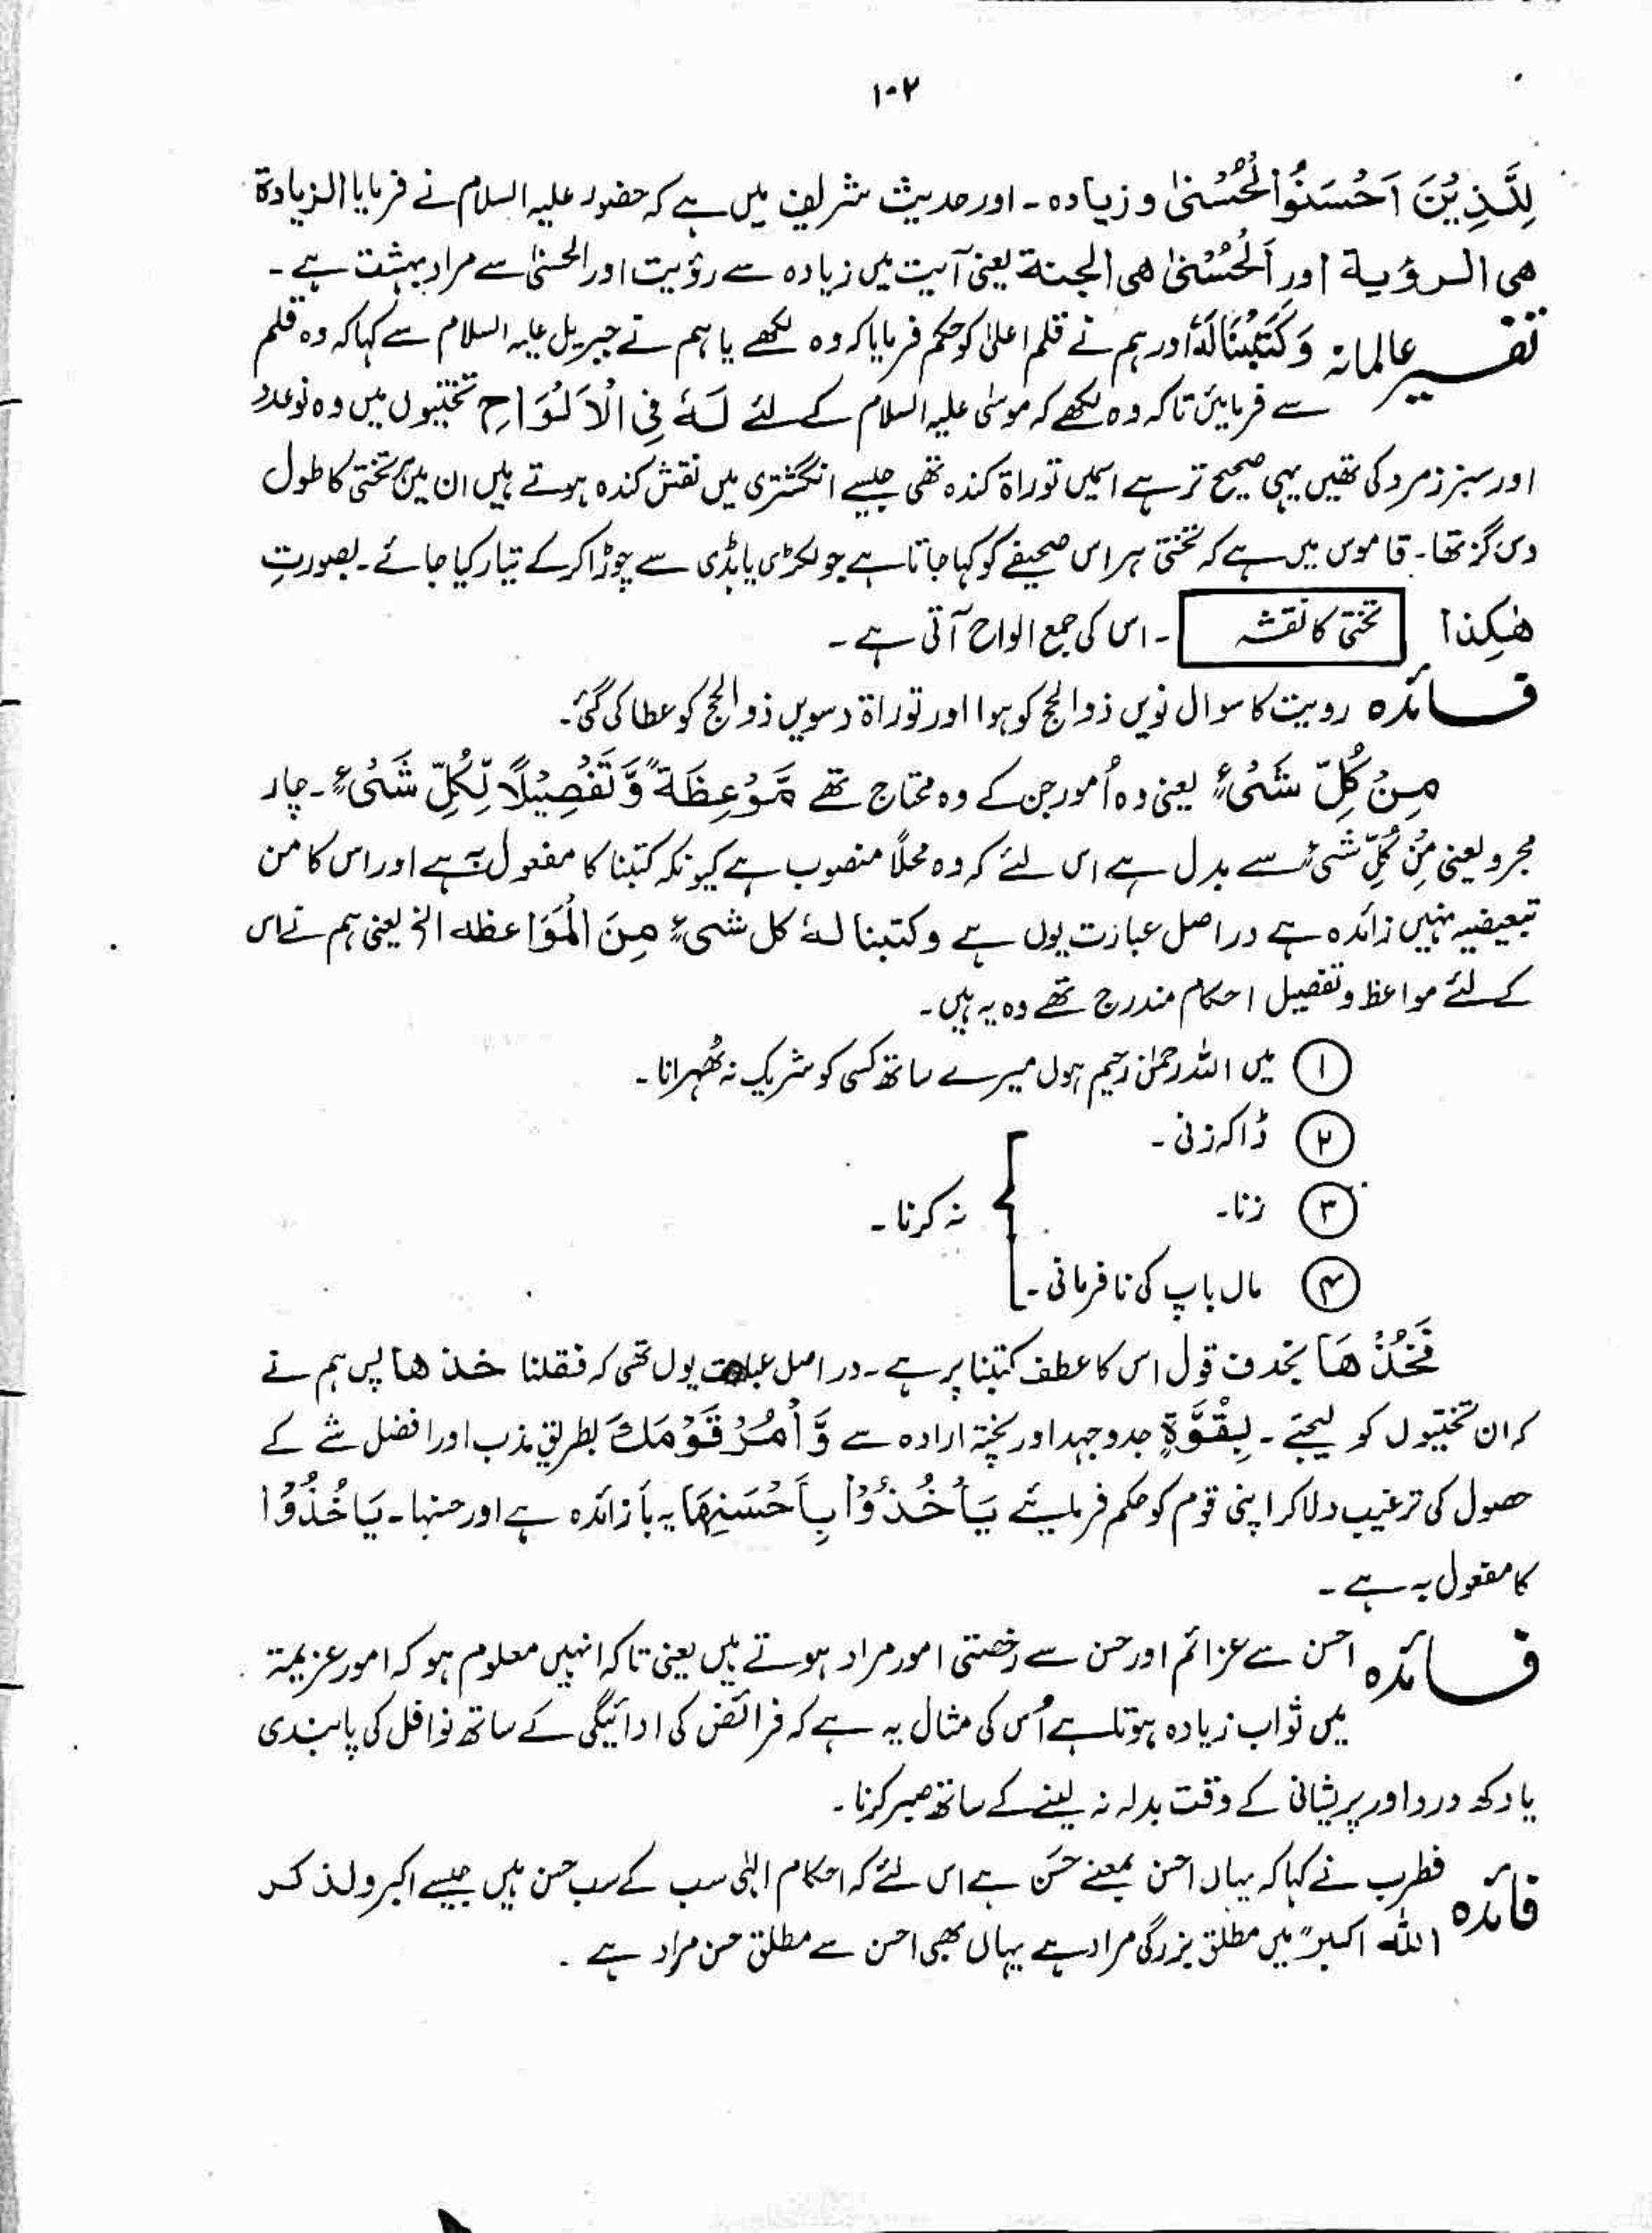 ۱۰۲
لِلَّذِیْنَ اَحْسَنُوا الْحُسْنٰی و زیادہ ۔ اور حدیث شریف میں ہے کہ حضور علیہ السلام نے فرمایا الزیادۃ
ھی الرؤیۃ اور اَلْحُسْنٰی ھی الجنۃ یعنی آیت میں زیادہ سے رؤیت اور الحسنٰی سے مراد بہشت ہے ۔
تفسیر عالمانہ وَکَتَبْنَا لَہٗ اور ہم نے قلم اعلیٰ کو حکم فرمایا کہ وہ لکھے یا ہم نے جبریل علیہ السلام سے کہا کہ وہ قلم
سے فرمائیں تاکہ وہ لکھے کہ موسٰی علیہ السلام کے لئے لَہٗ فِی الْاَلْوَاحِ تختیوں میں وہ نو عدد
اور سبز زمرد کی تھیں یہی صحیح تر ہے اسمیں توراۃ کندہ تھی جیسے انگشتری میں نقش کندہ ہوتے ہیں ان میں ہر تختی کا طول
دس گز تھا ۔ قاموس میں ہے کہ تختی ہر اس صحیفے کو کہا جاتا ہے جو لکڑی یا ہڈی سے چوڑا کر کے تیار کیا جائے ۔ بصورتِ
ھٰکذا تختی کا نقشہ ۔ اس کی جمع الواح آتی ہے ۔
فائدہ رویت کا سوال نویں ذوالحج کو ہوا اور توراۃ دسویں ذوالحج کو عطا کی گئی ۔
مِنْ کُلِّ شَیْءٍ یعنی وہ اُمور جن کے وہ محتاج تھے مَّوْعِظَۃً وَّتَفْصِیْلًا لِّکُلِّ شَیْءٍ ۔ جار
مجرو یعنی مِنْ کُلِّ شَیْءٍ سے بدل ہے اس لئے کہ وہ محلاً منصوب ہے کیونکہ کتبنا کا مفعول بہٖ ہے اور اس کا من
تبعیضیہ نہیں زائدہ ہے در اصل عبارت یوں ہے وکتبنا لہٗ کل شیءٍ مِنَ الْمَوَاعظہ الخ یعنی ہم نے اس
کے لئے مواعظ و تفصیل احکام مندرج تھے وہ یہ ہیں ۔
۱ میں اللہ رحمٰن رحیم ہوں میرے ساتھ کسی کو شریک نہ ٹھہرانا ۔
۲ ڈاکہ زنی ۔
۳ زنا ۔ نہ کرنا ۔
۴ ماں باپ کی نافرمانی ۔
فَخُذْھَا بحذف قول اس کا عطف کتبنا پر ہے ۔ در اصل عبارت یوں تھی کہ فقلنا خذھا پس ہم نے
کہ ان تختیوں کو لیجئے ۔ بِقُوَّۃٍ جدوجہد اور پختہ ارادہ سے وَّأْمُرْ قَوْمَکَ بطریق مذب اور افضل شے کے
حصول کی ترغیب دلا کر اپنی قوم کو حکم فرمائیے یَأْخُذُوْا بِأَحْسَنِھَا یہ بأ زائدہ ہے اور حسنہا ۔ یَاخُذُوْا
کا مفعول بہ ہے ۔
فائدہ احسن سے عزائم اور حسن سے رخصتی امور مراد ہوتے ہیں یعنی تاکہ انہیں معلوم ہو کہ امور عزیمۃ
میں ثواب زیادہ ہوتا ہے اُس کی مثال یہ ہے کہ فرائض کی ادائیگی کے ساتھ نوافل کی پابندی
یا دکھ درد اور پریشانی کے وقت بدلہ نہ لینے کے ساتھ صبر کرنا ۔
فائدہ قطرب نے کہا کہ یہاں احسن بمعنے حسَن ہے اس لئے کہ احکام الٰہی سب کے سب حسن ہیں جیسے اکبر ولذکر
اللّٰہ اکبر" میں مطلق بزرگی مراد ہے یہاں بھی احسن سے مطلق حسن مراد ہے ۔